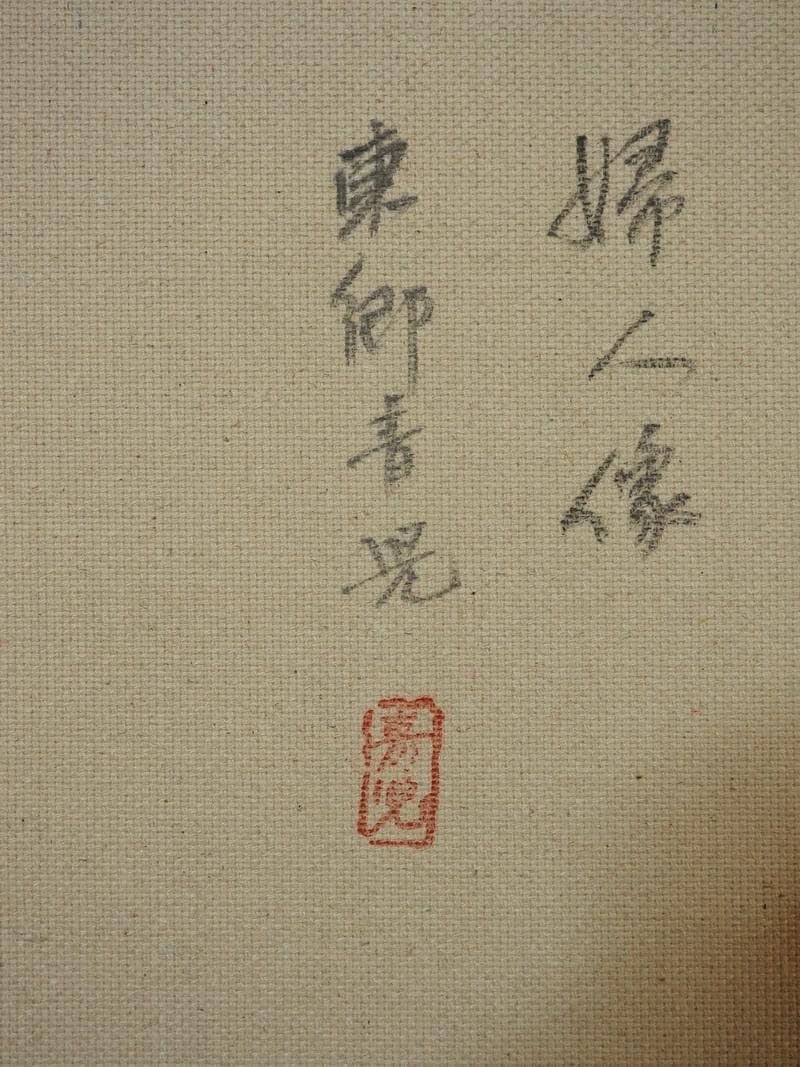 婦人像
東郷青児
青児